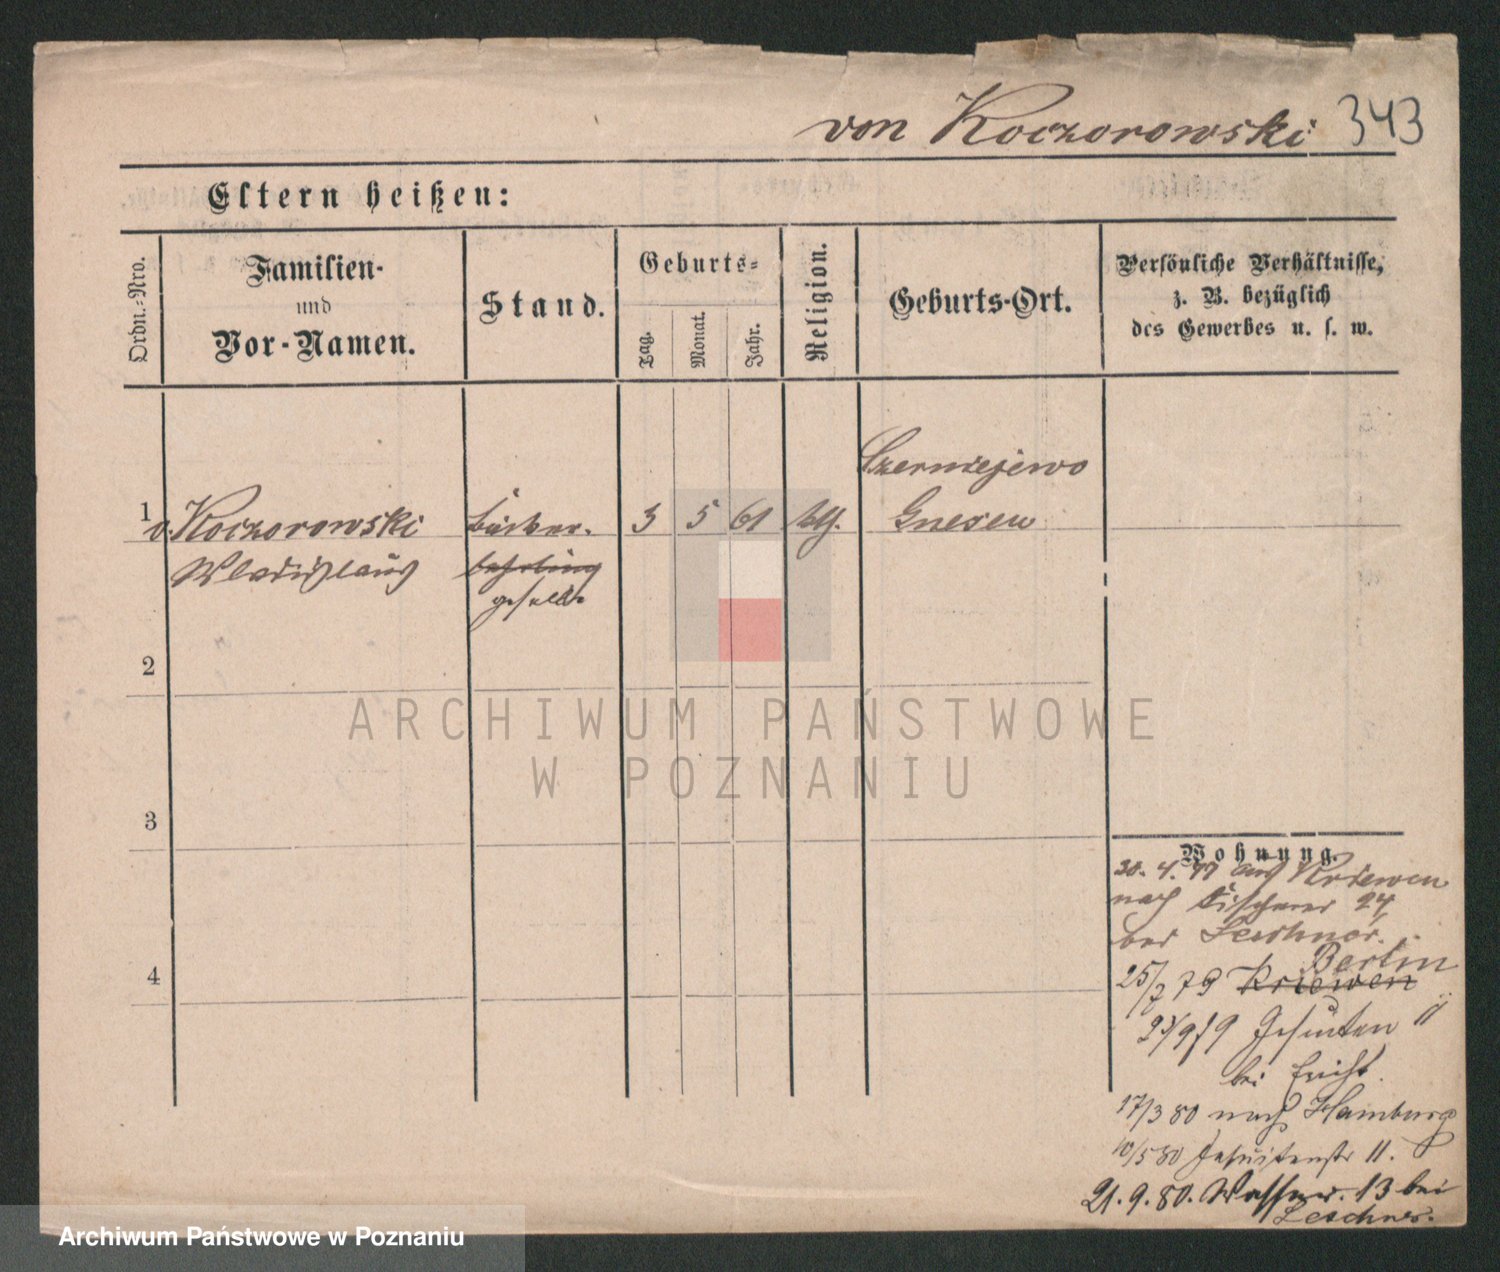 von Koczorowski 343
Eltern heißen:
Ordn.-Nro.
Familien-
und
Vor-Namen.
Stand.
Geburts-
Tag.
Monat.
Jahr.
Religion.
Geburts-Ort.
Persönliche Verhältnisse,
z. B. bezüglich
des Gewerbes u. s. w.
Czerniejewo
1 v. Koczorowski Bäcker- 3 5 61 kth. Gnesen
Wladislaus lehrling
geselle
2
ARCHIWUM PAŃSTWOWE
W POZNANIU
3
Wohnung.
30. 4. 77 aus Kriewen
nach 24
bei Leschner.
Berlin
25/7 79 Kriewen
23/9 79 Jesuiten 11
bei
17/3 80 nach Hamburg
4
10/5 80 Jesuitenstr 11.
21. 9. 80. Wasserstr. 13 bei
Leschner.
Archiwum Państwowe w Poznaniu